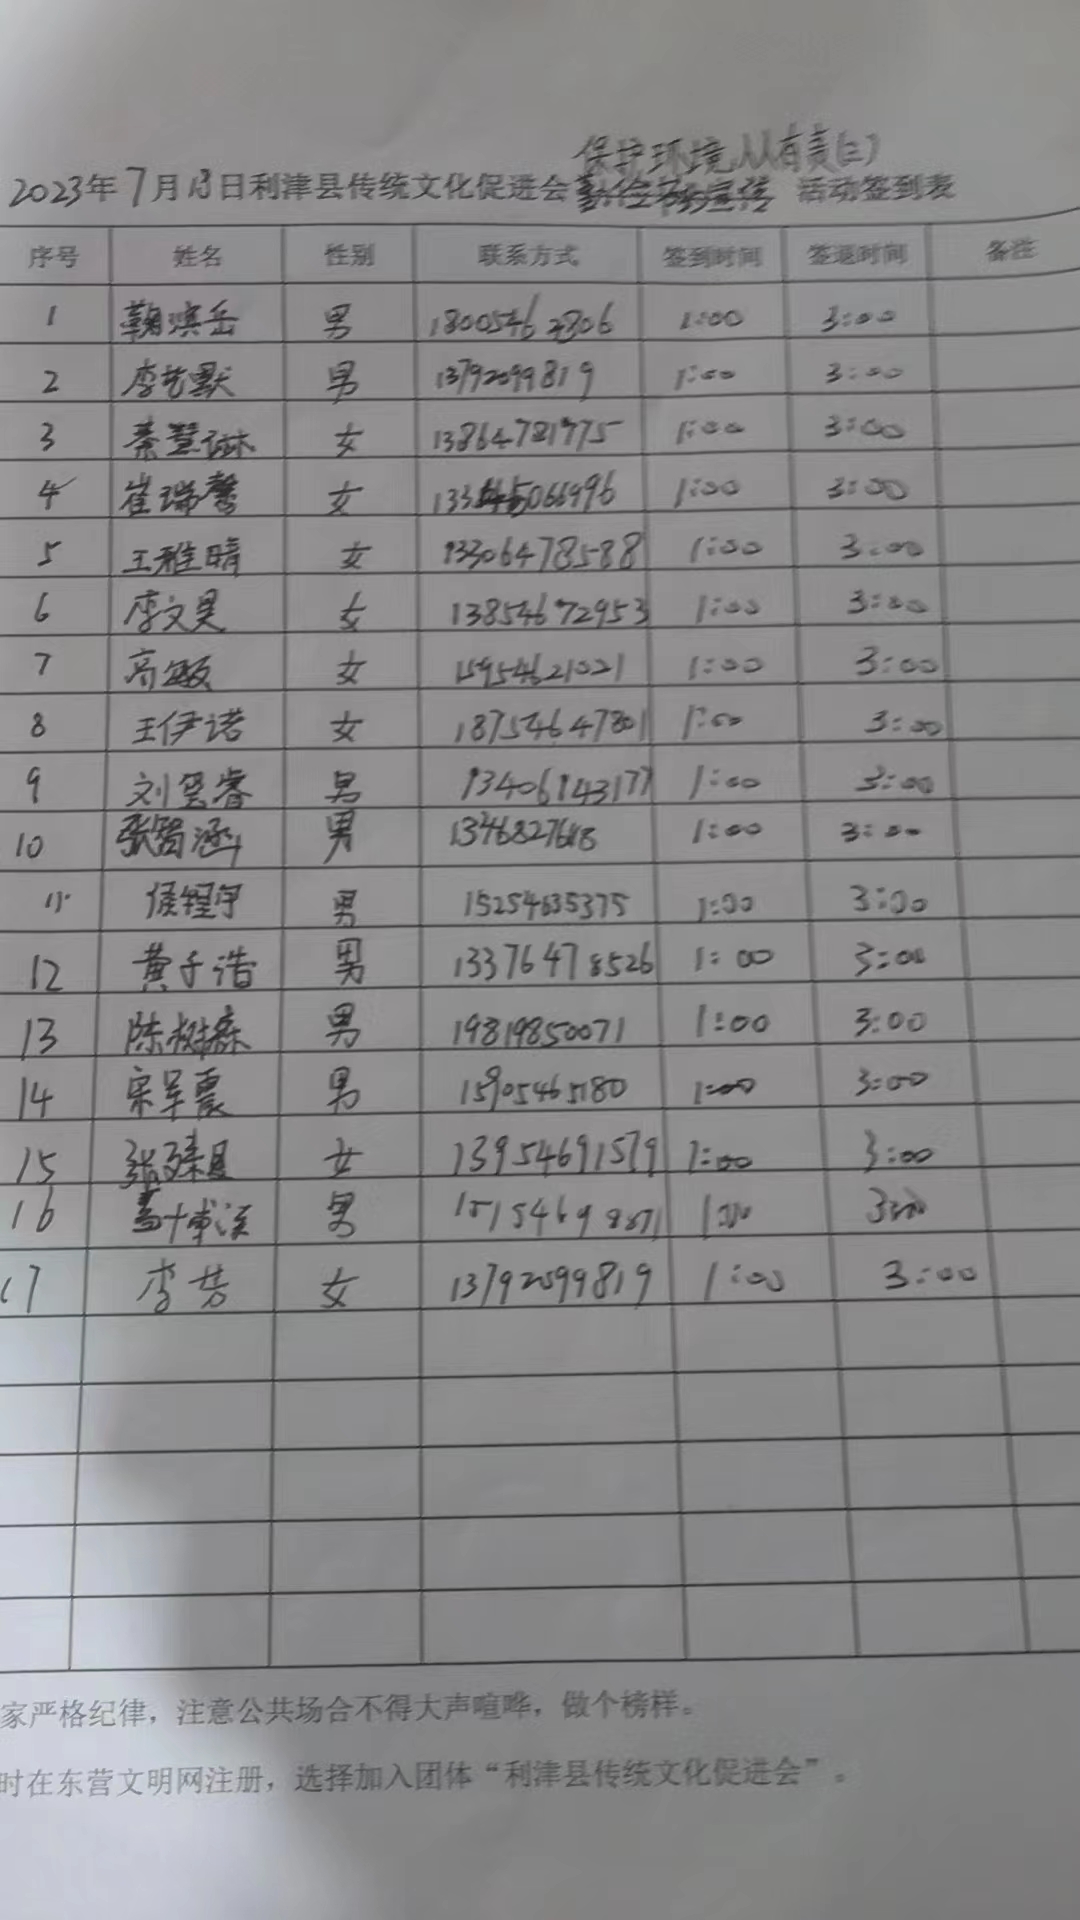 保护环境,从有责(二)
2023年7月13日利津县传统文化促进会 活动签到表
序号 姓名 性别 联系方式 签到时间 签退时间 备注
1 鞠滨岳 男 1:00 3:00
2 李艺默 男 13792099819 1:00 3:00
3 秦慧琳 女 13864781775 1:00 3:00
4 崔瑞馨 女 1:00 3:00
5 王雅晴 女 13306478588 1:00 3:00
6 李文昊 女 13854672953 1:00 3:00
7 高敏 女 15954621021 1:00 3:00
8 王伊诺 女 18754647801 1:00 3:00
9 刘昱睿 男 13406143177 1:00 3:00
10 张智涵 男 1:00 3:00
11 侯程宇 男 15254635375 1:00 3:00
12 黄子浩 男 13376478526 1:00 3:00
13 陈树森 男 19819850071 1:00 3:00
14 宋军震 男 15905465180 1:00 3:00
15 女 13954691579 1:00 3:00
16 男 1:00 3:00
17 李芳 女 13792099819 1:00 3:00
家严格纪律，注意公共场合不得大声喧哗，做个榜样。
时在东营文明网注册，选择加入团体“利津县传统文化促进会”。